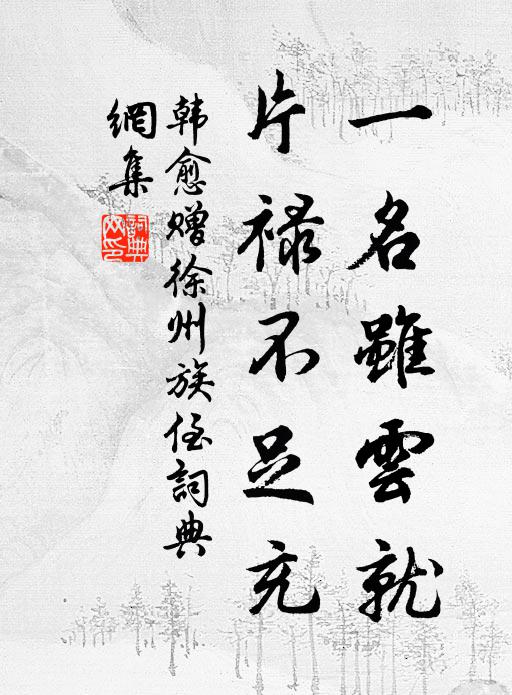 一名雖雲就
片禄不足充
韩愈赠徐州族侄詞典
網集
詞典
网印